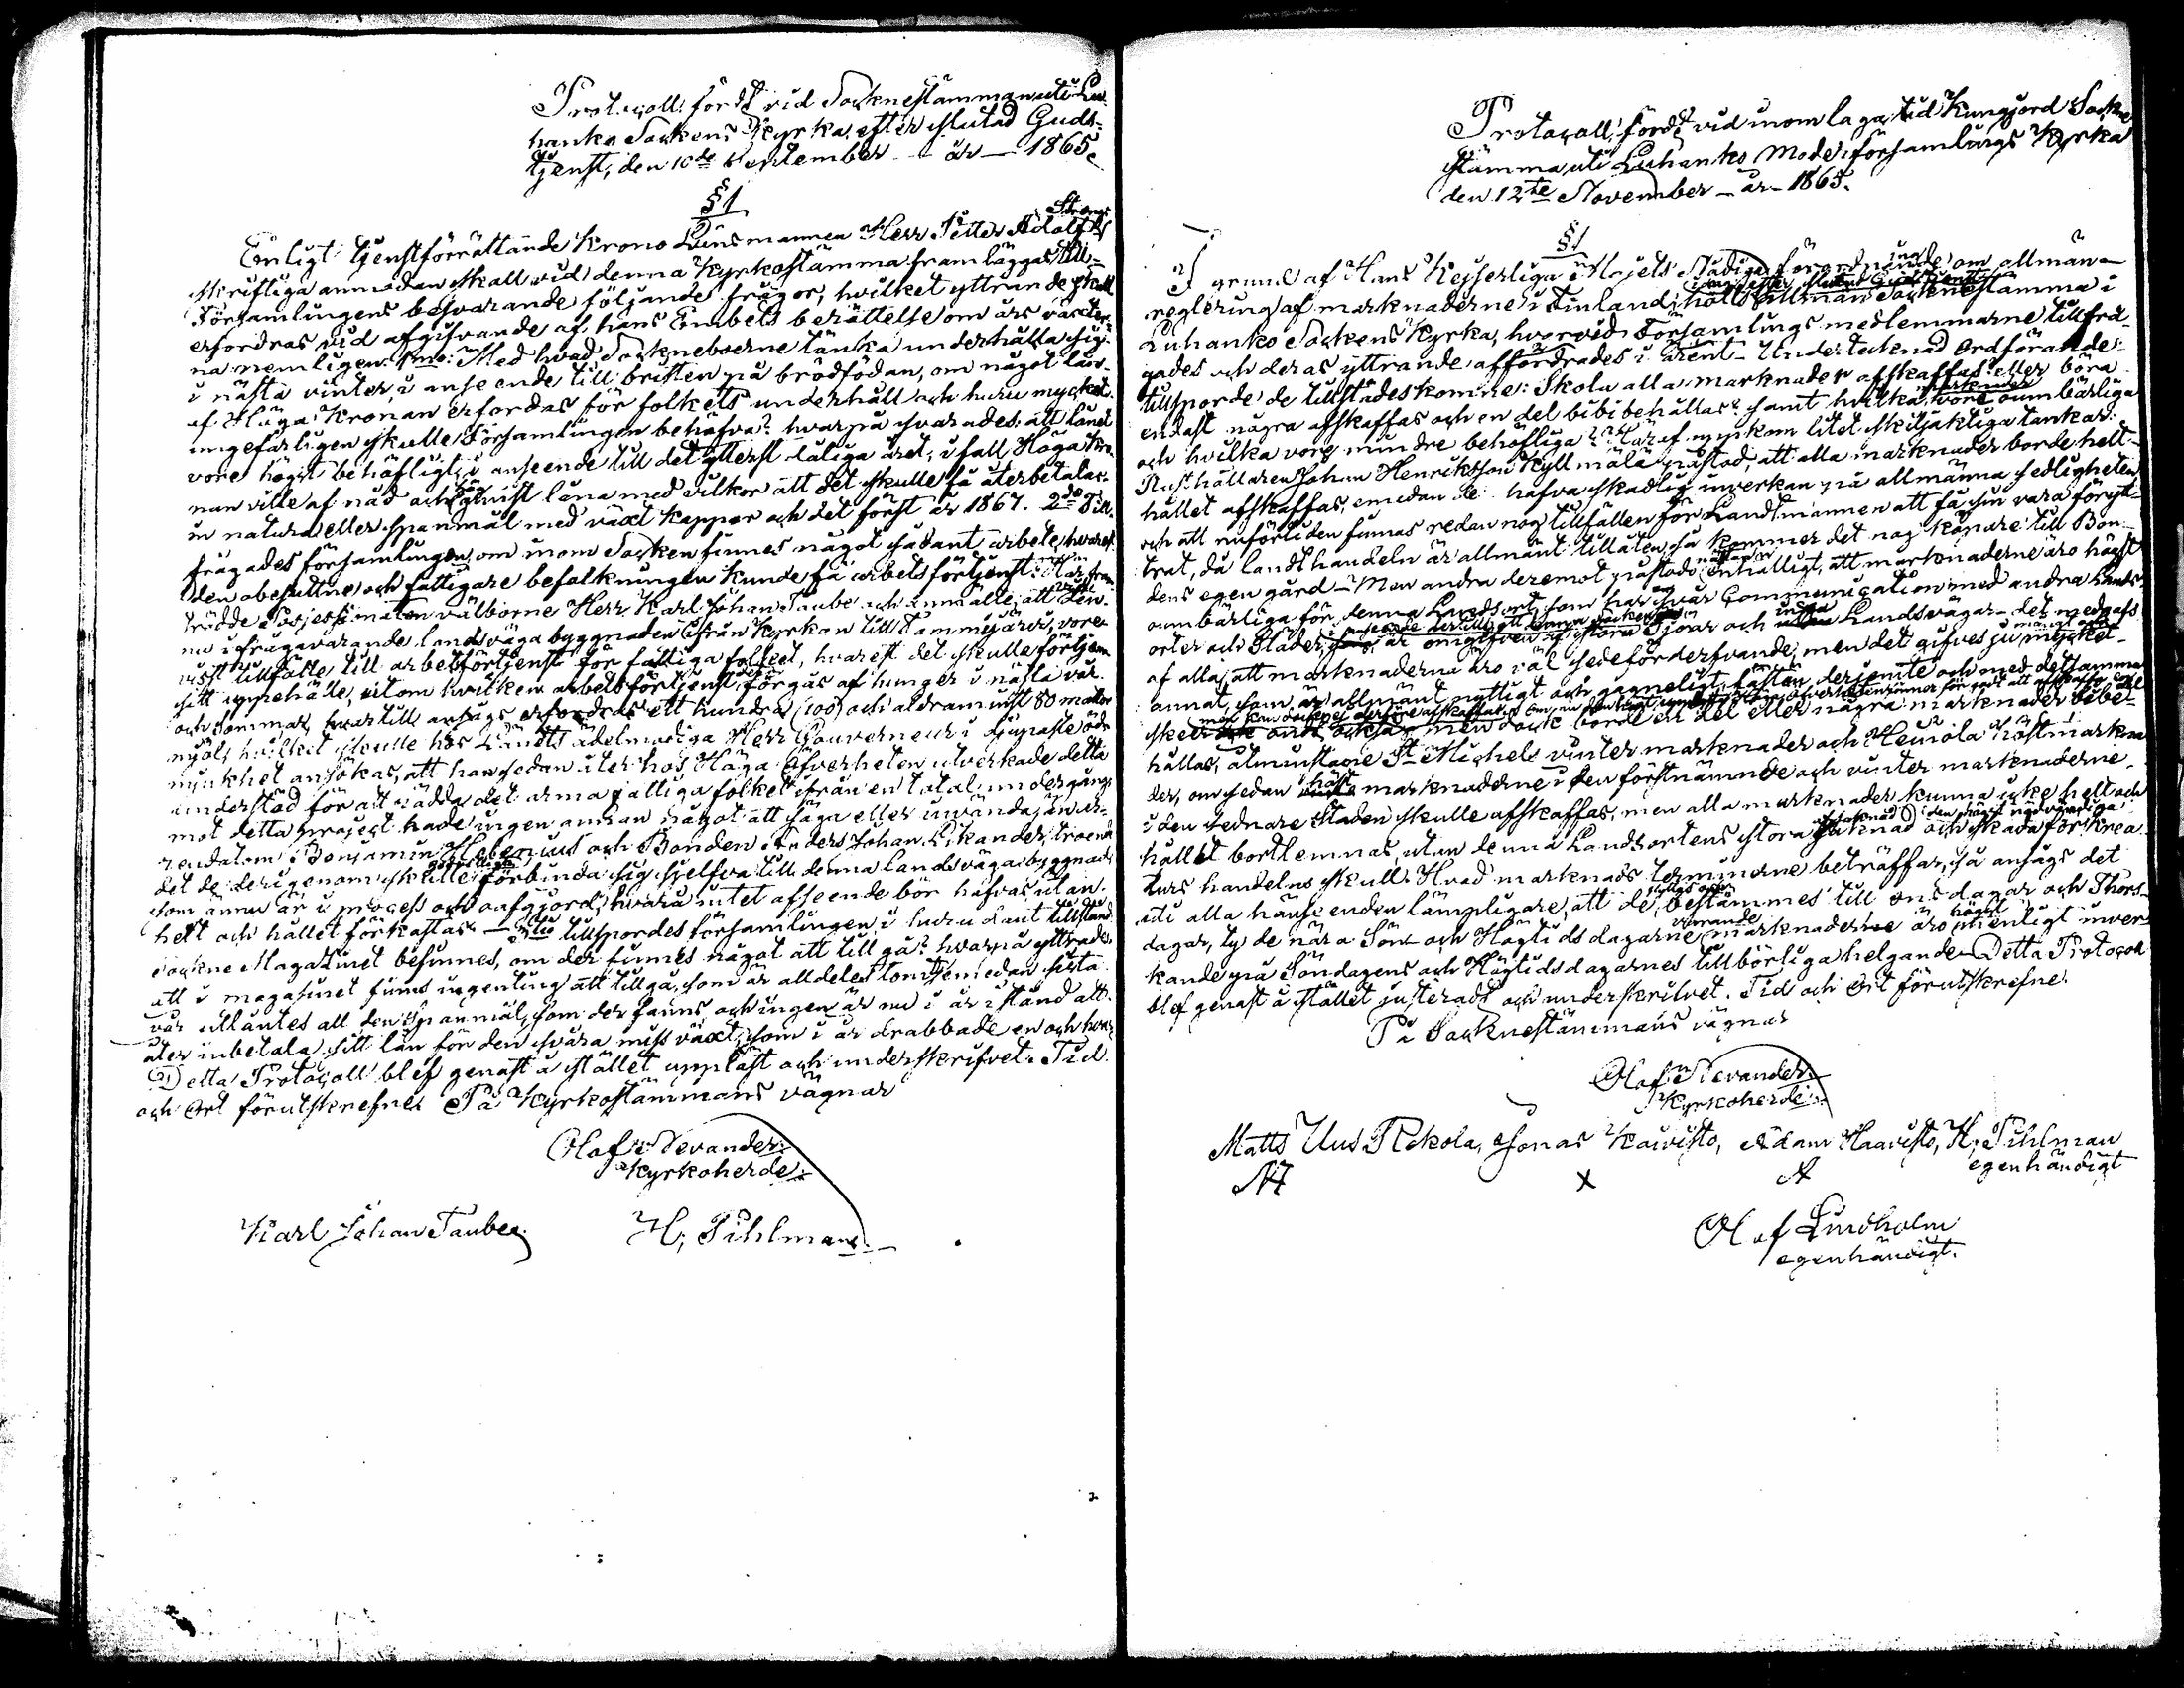 Protocoll, fördt vid Socknestämman uti Lu-
hanko Sockens Kyrka efter slutad Guds-
tjenst, den 10de September - år - 1865.
§1
Enligt tjenstförrättande Krono Länsmannen Herr Petter Adolf Strengs
skriftliga anmodan skall vid denna Kyrkostämma framläggas till
Församlingens besvarande följande frågor, hvilket yttrande skall
erfordras vid afgifvande af hans Embets berättelse om års växter-
na nemligen 1mo: Med hvad Sockneboerne tänka underhålla sig
i nästa vinter, i anseende till bristen på brödfödan, om något lån
af Höga Kronan erfordas för folkets underhåll och huru mycket
ungefärligen skulle Församlingen behöfva? hvarpå svarades: att lånet
vore högst behöfligt, i anseende till det ytterst dåliga året, i fall Höga Kro-
nan ville af nåd och gunst låna med vilkor att det skulle få återbetalas
in natura eller spanmål med växt kappor och det först år 1867. 2do Till-
frågades församlingen, om inom Socken finnes något sådant arbete, hvarest
den obesuttne och fattigare befolkningen kunde få arbetsförtjenst? Här fram-
trädde Possessionaten välborne Herr Karl Johan Taube och anmälte, att den
nu i frågavarande landsväga byggnaden ifrån Kyrkan till Tammijärvi, vore
visst tillfälle till arbetsförtjenst för fattiga folket, hvarest det skulle förtjena
sitt uppehälle, utom hvilken arbetsförtjenst det förgås af hunger i nästa vår
och sommar, hvartill ansågs erfordras ett hundra (100) och aldraminst 80 mattor
mjöl, hvilket skulle hos Landts ädelmodiga Herr Gouverneur i djupaste öd-
mjukhet ansökas, att han sedan åter hos Höga Öfverheten utverkade detta
understöd för att rädda det arma fattiga folket ifrån en total undergång
mot detta project hade ingen annan något att säga eller invända, än ar-
rendatorn Benjamin Hebenius och Bonden Anders Johan Likander, troende
det de derigenom skulle förbinda sig sjelfva till denna Landsvägabyggnad
som ännu är i process och oafgjord, hvarå intet afseende bör häfvas, utan
helt och hållet förkastas - 3tio tillspordes församlingen, i huru dant tillstånd
Sockne Magazinet befinnes, om der finnes något att tillgå? hvarpå yttrades
att i magasinet finns ingenting att tillgå, som är alldeles tomt, emedan sista
vår utlåntes all den spanmål, som der fanns, och ingen är nu i år i stånd att
åter inbetala sitt lån för den svåra miss växt, som i år drabbade en och hvar
Detta Protocoll blef genast å stället uppläst och underskrifvet. Tid
och Ort förutskrefne. På Kyrkostämmans vägnar
Olof Nevander
Kyrkoherde
Karl Johan Taube
H. Pihlman
Protocoll, fördt vid inom laga tid Kungjord Sockne
stämma uti Luhanko Moderförsamlings Kyrka
den 12te November - år - 1865.
§1
I grund af Hans Kejserliga Majets Nådiga förordnande om allmän
reglering af marknaderne i Finland, hölls i dag efter slutad Gudstjenst allmän Socknestämma i
Luhanko Sockens Kyrka, hvarvid Församlings medlemmarne tillfrå-
gades och deras yttrande affordrades i ärent - Undertecknad Ordförande
tillsporde de tillstädeskomne: Skola alla marknader afskaffas eller böra
endast några afskaffas och en del bibibehållas? samt hvilka marknader vore oumbärliga
och hvilka vore mindre behöfliga? Häraf uppkom litet skiljaktiga tankar:
Rusthållaren Johan Henriksson Kyllmälä påstod, att alla marknader borde helt
hållet afskaffas, emedan de hafva skadlig inverkan på allmänna sedligheten
och att nuförtiden finnas redan nog tillfällen för Landtmannen att få sin vara föryt-
trat, då landthandeln är allmänt tillåten, så kommer det nog köpare till Bon-
dens egen gård - Men andra deremot påstodo enhälligt, att marknaderne äro högst
oumbärliga för denna Landsort, som har svår Communication med andra Lands-
orter och Städer, i anseende dertill att denna Socken är omgifven af stora Sjöar och inga Landsvägar - det medgafs
af alla, att marknaderna äro väl sedeförderfvande, men det gifves ju mångt och mycket
annat, som är allmänt nyttigt och gagneligt, fastän derjemte och med detsamma
sker ock ondt också, men dock borde en del eller några marknader bibe-
hållas, åtminstone St Michels vinter marknader och Heinola höstmarkna
der, om sedan höst marknaderne i den förstnämnde och vinter marknaderne
i den sednare Staden skulle afskaffas, men alla marknader kunna icke helt och
hållet bortlemnas, utan denna Landsortens stora saknad och skada för krea-
turs handelns skull. Hvad marknads terminerne beträffar, så ansågs det
uti alla hänseenden lämpligare, att de bestämmes till onsdagar och Thors-
dagar, ty de nära Sön- och Högtidsdagarne varande marknaderne äro högst menligt inver
kande på Söndagens och Högtidsdagarnes tillbörliga helgande. Detta Protocoll
blef genast å stället justeradt och underskrifvet. Tid och Ort förutskrefne.
På Socknestämmans vägnar
Olof Nevander
Kyrkoherde
Matts Uus Rekola, Jonas Kaivisto, Adam Haavisto, H. Pihlman
egenhändigt
Olof Lindholm
egenhändigt.